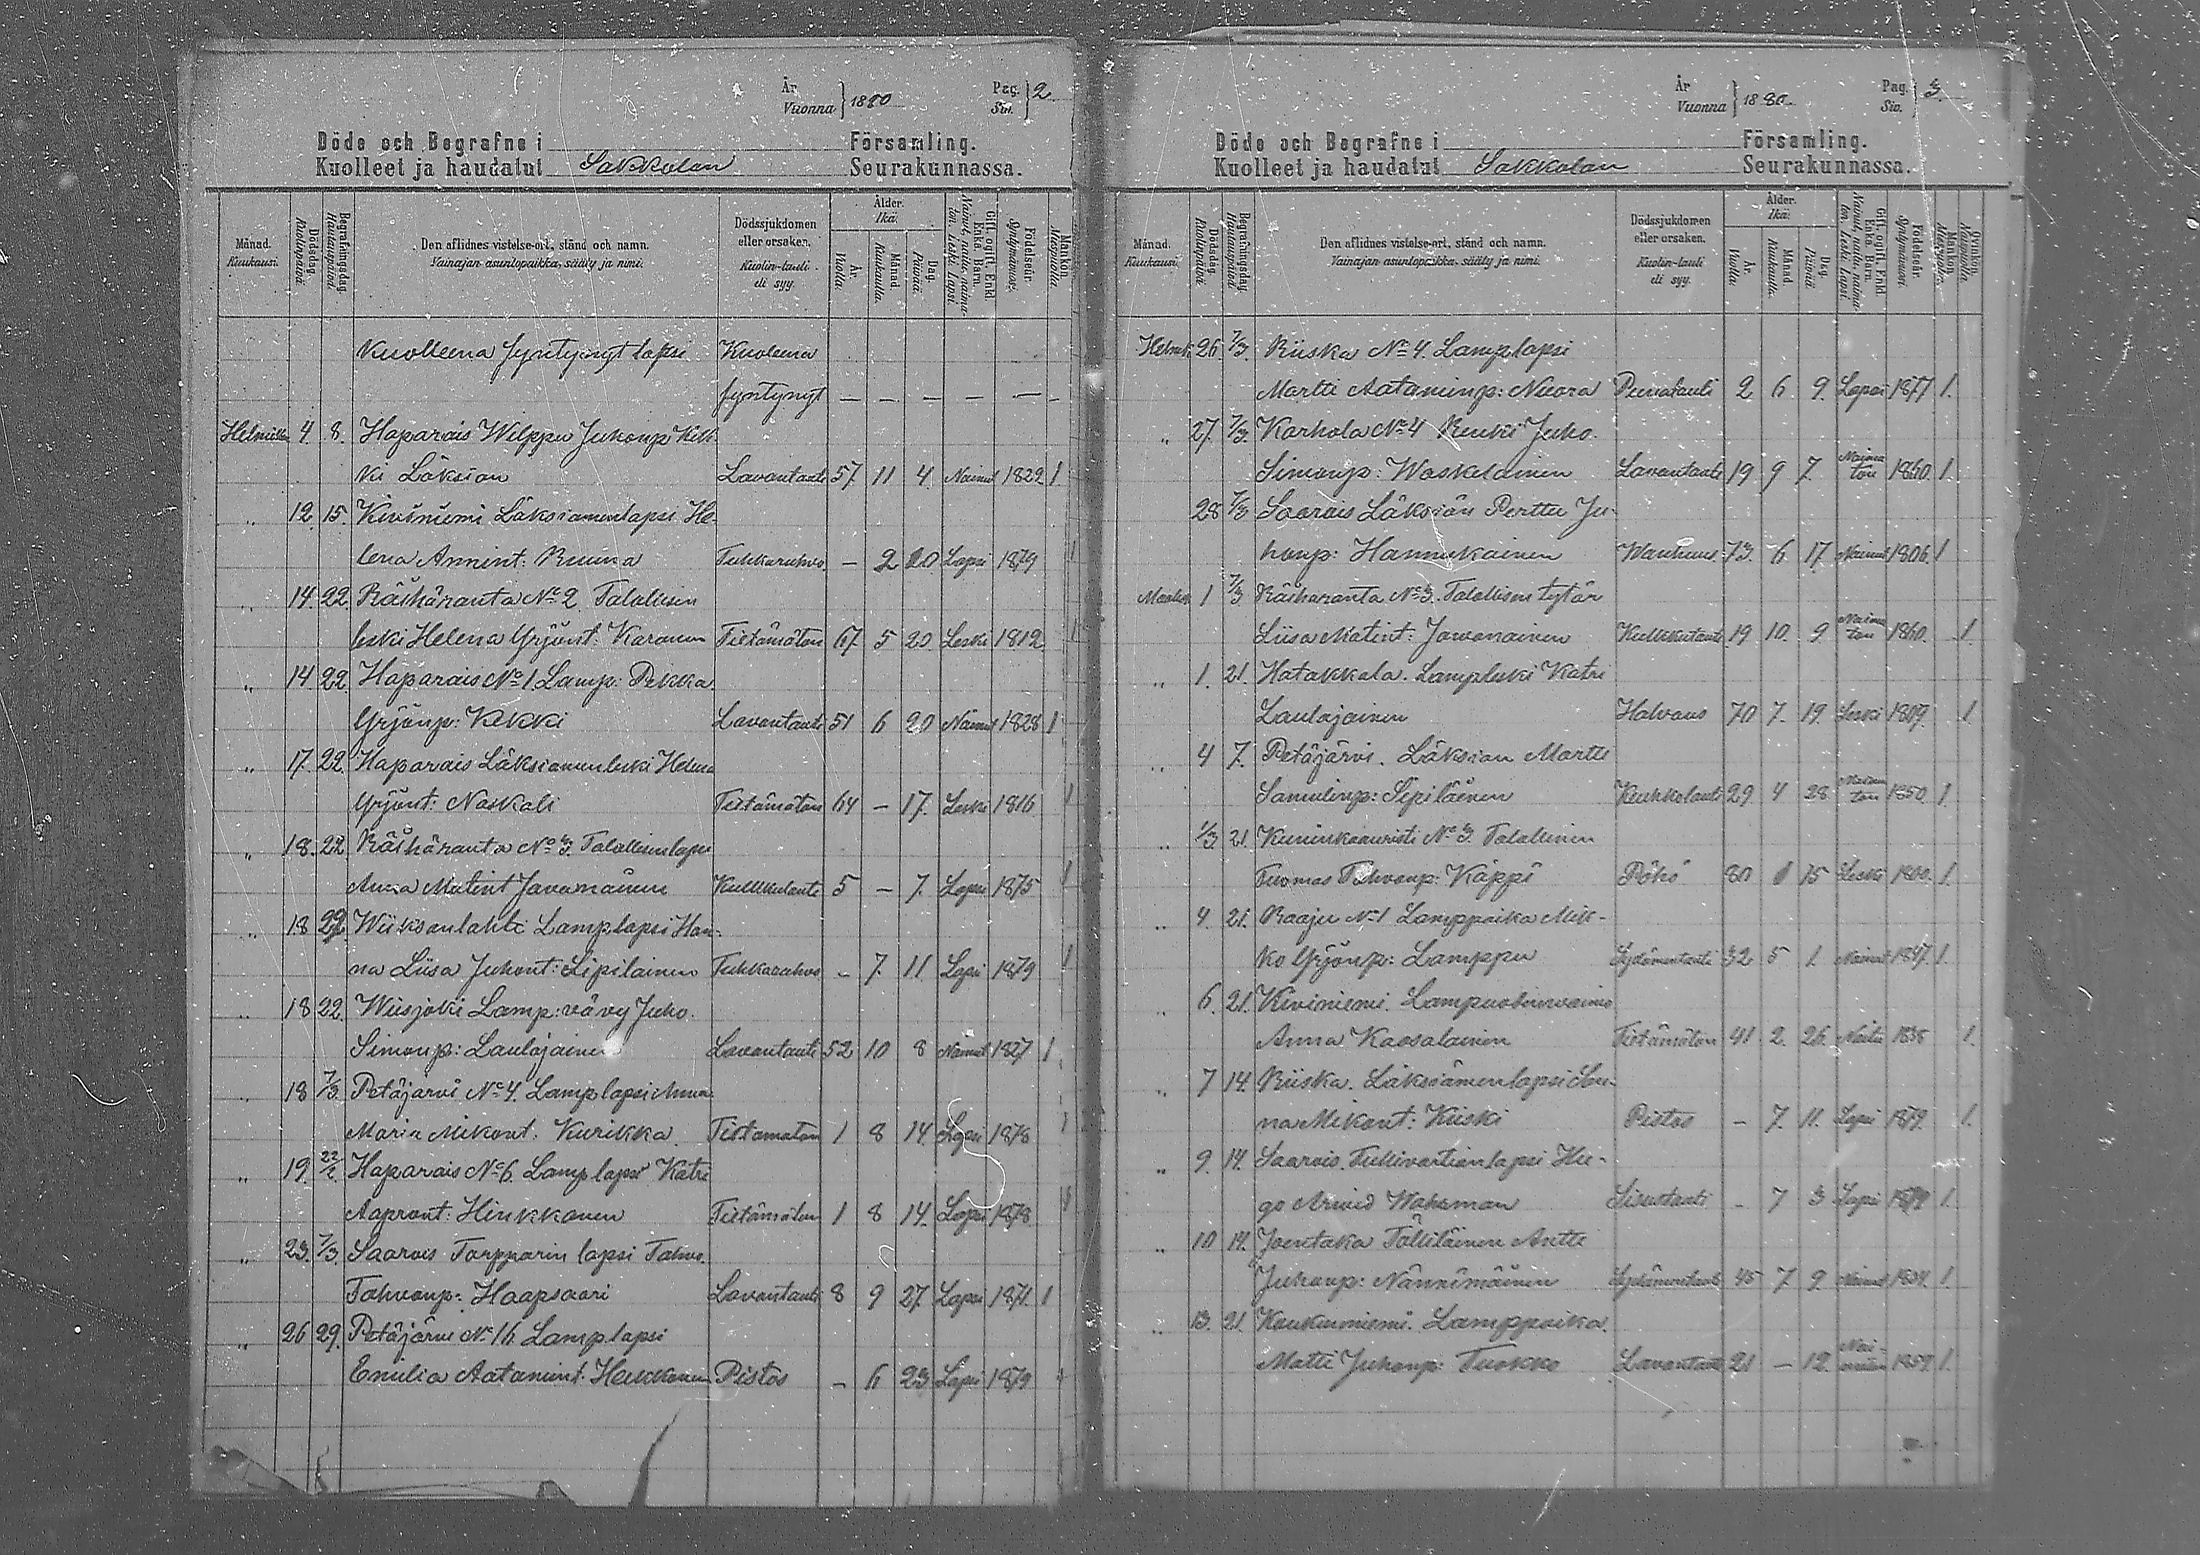 År
Vuonna } 1880
Pag.
Siv. } 2
Döde och Begrafne i Församling.
Kuolleet ja haudatut Sakkolan Seurakunnassa.
Månad. Kuukausi.
Dödsdag. Kuolinpäivä.
Begrafningsdag. Hautauspäivä.
Den aflidnes vistelse-ort, stånd och namn.
Vainajan asuntopaikka, sääty ja nimi.
Dödssjukdomen eller orsaken.
Kuolin-tauti eli syy.
Ålder. Ikä.
År. Vuotta.
Månad. Kuukautta.
Dag. Päiviä.
Gift, ogift, Enkl. Enka, Barn.
Nainut, naitu, naimaton, leski, Lapsi.
Födelseår. Syntymävuosi.
Mankön. Miespuolta.
Kuolleena syntynyt lapsi Kuoleena
syntynyt — — — — — —
Helmikuu 4. 8. Haparais Wilppu Juhonp Kek
ki Läksian Lavantauti 57 11 4 Nainut 1822 1
„ 12 15. Kiviniemi Läksiamenlapsi He-
lena Annint: Ruuna Tuhkaruhvo — 2 20 Lapsi 1879 1
„ 14. 22 Räihäranta No 2 Talollisen
leski Helena Yrjönt: Karanen Tietämätön 67 5 20 Leski 1812 1
„ 14 22 Haparais No 1 Lamp: Pekka
Yrjönp: Kekki Lavantauti 51 6 20 Nainut 1828 1
„ 17. 22. Haparais Läksiamenleski Helena
Yrjönt: Naskali Tietämätön 64 — 17. Leski 1816 1
„ 18. 22. Räihäranta No 3. Talollisenlapsi
Anna Matint Javanainen Kulkkutauti 5 — 7. Lapsi 1875 1
„ 18 22. Wiiksanlahti Lamplapsi Han-
na Liisa Juhont: Sipilainen Tuhkarahvo — 7. 11 Lapsi 1879 1
„ 18 22. Wiisjoki Lamp: vävy Juho.
Simonp: Laulajainen Lavantauti 52 10 8 Nainut 1827 1
„ 18 7/3 Petäjarvi No 4. Lamplapsi Anna
Maria Mikont. Kurikka Tietamaton 1 8 14. Lapsi 1878 1
„ 19. 22/2. Haparais No 6. Lamp lapsi Katri
Aapront: Hinkkonen Tietämäton 1 8 14. Lapsi 1878 1
„ 23. 7/3. Saarois Torpparin lapsi Tahvo.
Tahvonp: Haapsaari Lavantauti 8 9 27 Lapsi 1871. 1
„ 26 29. Petäjärvi No 16 Lamplapsi
Emilia Aatamint Heikkonen Pistos — 6 23 Lapsi 1879
År
Vuonna } 1880
Pag.
Siv. } 3.
Döde och Begrafne i Församling.
Kuolleet ja haudatut Sakkolan Seurakunnassa.
Månad. Kuukausi.
Dödsdag. Kuolinpäivä.
Begrafningsdag. Hautauspäivä.
Den aflidnes vistelse-ort, stånd och namn.
Vainajan asuntopaikka, sääty ja nimi.
Dödssjukdomen eller orsaken.
Kuolin-tauti eli syy.
Ålder. Ikä.
År. Vuotta.
Månad. Kuukautta.
Dag. Päiviä.
Gift, ogift, Enkl. Enka, Barn.
Nainut, naitu, naimaton, leski, Lapsi.
Födelseår. Syntymävuosi.
Mankön. Miespuolta.
Qvinkön. Naispuolta.
Helmik. 26 7/3. Riiska No 4. Lamplapsi
Martti Aataminp: Nuora Punatauti 2 6 9. Lapsi 1877 1.
„ 27. 7/3. Karhola No 4 Renki Juho.
Simonp: Waskelainen Lavantauti 19 9 7. Naimaton 1860. 1.
28 7/3 Saarois Läksiän Perttu Ju-
honp: Hannukainen Wanhuus 73. 6 17. Nainut 1806. 1
Maalisk. 1 7/3 Räiharanta No 3. Talollisen tytär
Liisa Matint: Jawanainen Kulkkutauti 19. 10. 9 Naimaton 1860. 1
„ 1. 21. Hatakkala. Lampleski Katri
Laulajainen Halvaus 70 7. 19. Leski 1809. 1
„ 4 7. Petäjärvi. Läksian Martti
Samulinp: Sipiläinen Keuhkotauti 29 4 28. Naimaton 1850. 1.
„ 1/3 21. Kuninkaanristi No 3. Talollinen
Tuomas Tahvonp: Käppi Pöhö 80 1 15 Leski 1800. 1.
„ 4. 21. Raaju No 1 Lamppoika Mik-
ko Yrjönp: Lamppu Sydämentauti 32 5 1 Nainut 1847. 1.
„ 6. 21. Kiviniemi. Lampuotinvaimo
Anna Kaasalainen Tietämäton 41 2. 26. Naitu 1838 1.
„ 7 14. Riiska. Läksiämenlapsi Su-
na Mikont: Kiiski Pistos — 7. 11. Lapsi 1879. 1.
„ 9. 14. Saarois. Tullivartianlapsi Hu-
go Arvid Wahsman Sisustauti — 7 3 Lapsi 1879 1.
„ 10 14. Joentaka Tölliläinen Antti
Juhonp: Nännimäinen Sydämentauti 45 7 9 Nainut 1834. 1.
„ 13. 21. Kaukiniemi. Lamppoika.
Matti Juhonp: Tuokko Lavantauti 21 — 12. 1859. 1.